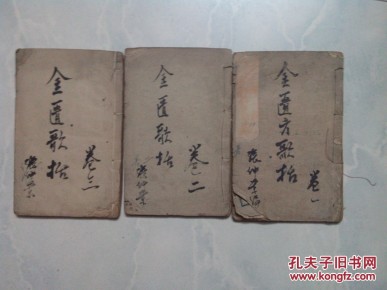 金匱方歌括
卷一
金匱歌括
卷二
金匱歌括
卷三
孔夫子旧书网